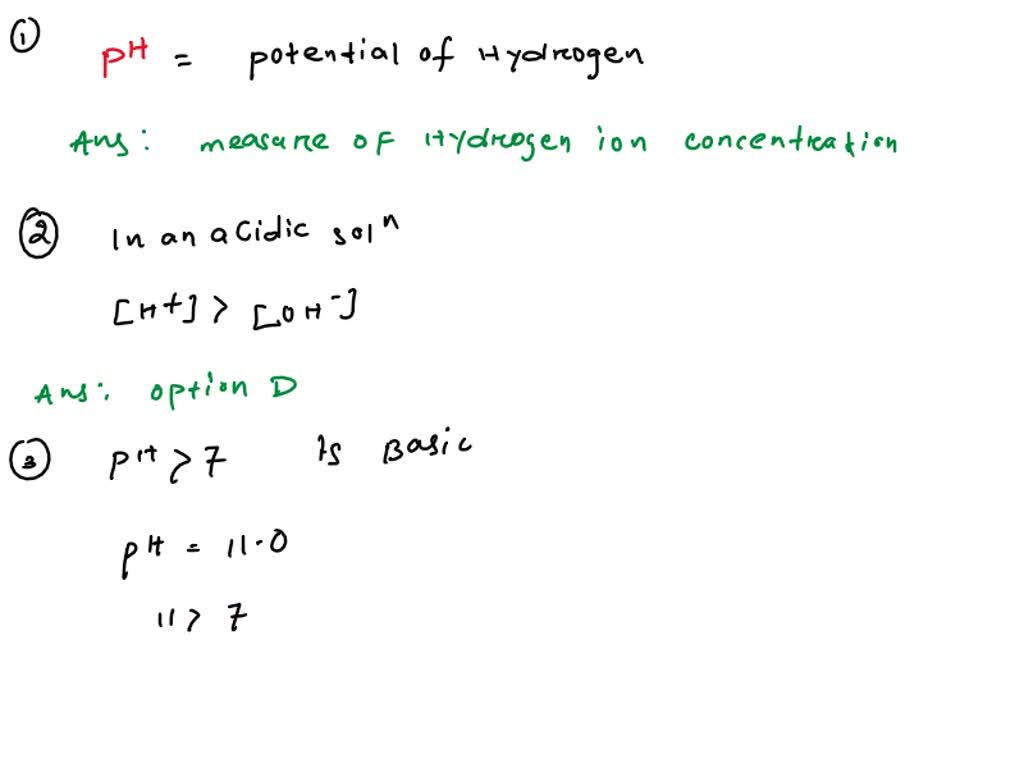 ① pH = potential of Hydrogen
Ans: measure of Hydrogen ion concentration
② In an acidic solⁿ
[H+] > [OH⁻]
Ans: option D
③ pH > 7 Is Basic
pH = 11.0
11 > 7